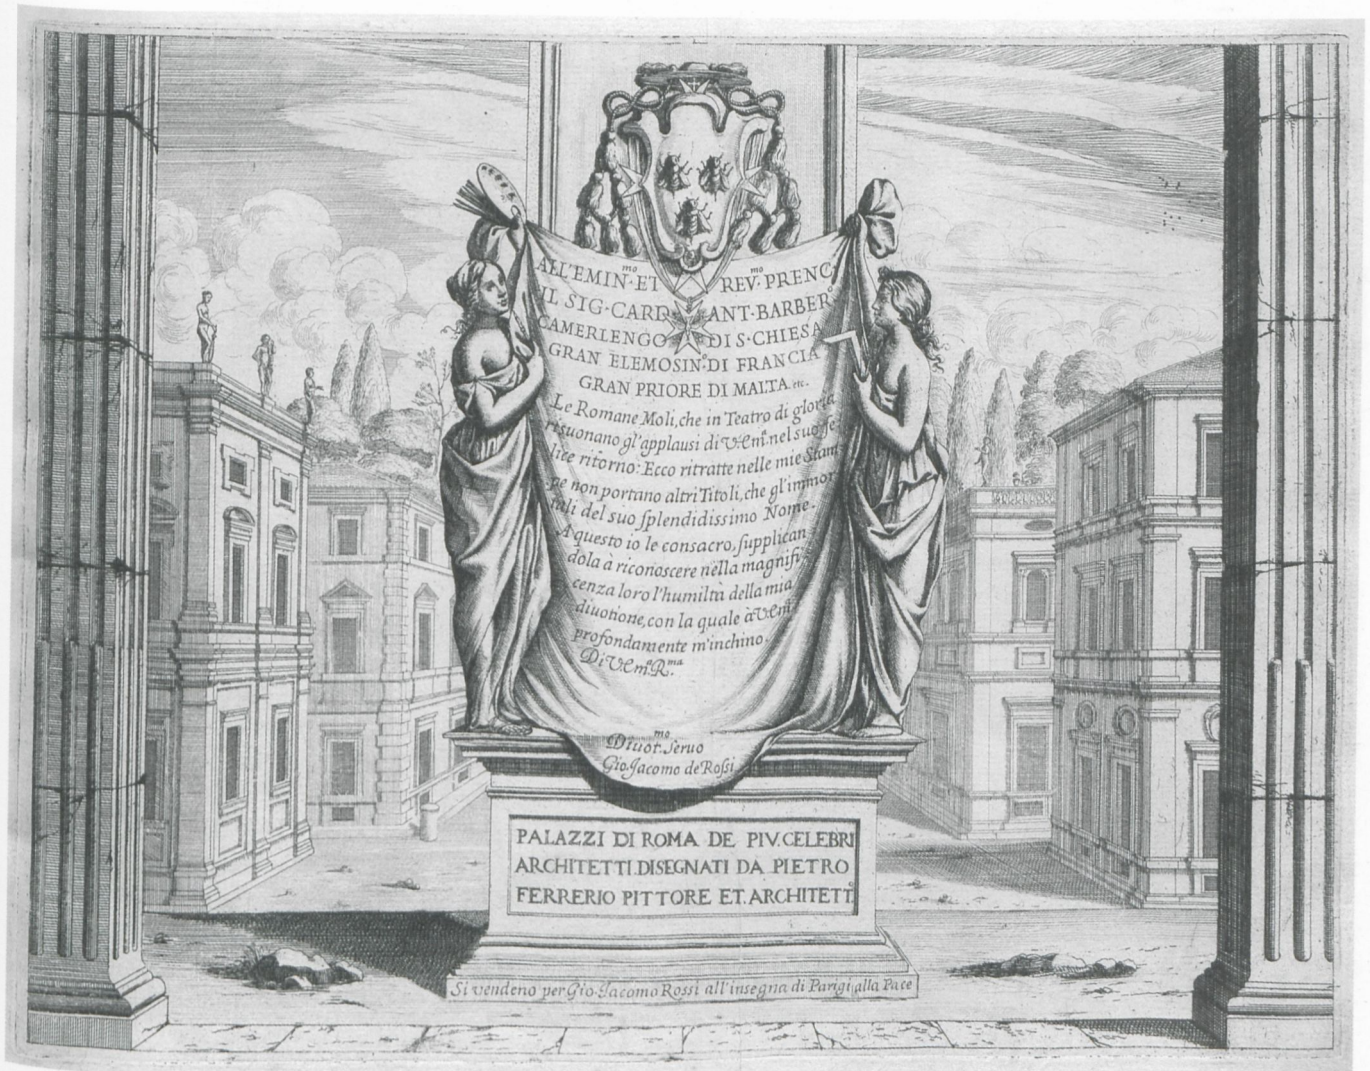 ALL'EMIN.mo ET REV.mo PRENC
IL SIG. CARD ANT. BARBER
CAMERLENGO DI S. CHIESA
GRAN ELEMOSIN.o DI FRANCIA
GRAN PRIORE DI MALTA. etc.
Le Romane Moli, che in Teatro di gloria
risuonano gl'applausi di V. Em.a nel suo fe-
lice ritorno: Ecco ritratte nelle mie Stam
pe non portano altri Titoli, che gl'immor
tali del suo splendidissimo Nome.
A questo io le consacro, supplican
dola à riconoscere nella magnifi
cenza loro l'humiltà della mia
diuotione, con la quale à V. Em.a
profondamente m'inchino.
Di V. Em.a R.ma
Diuot.mo Seruo
Gio. Jacomo de Rossi
PALAZZI DI ROMA DE PIV. CELEBRI
ARCHITETTI. DISEGNATI DA PIETRO
FERRERIO PITTORE ET. ARCHITETT.o
Si vendeno per Gio. Jacomo Rossi all'insegna di Parigi alla Pace